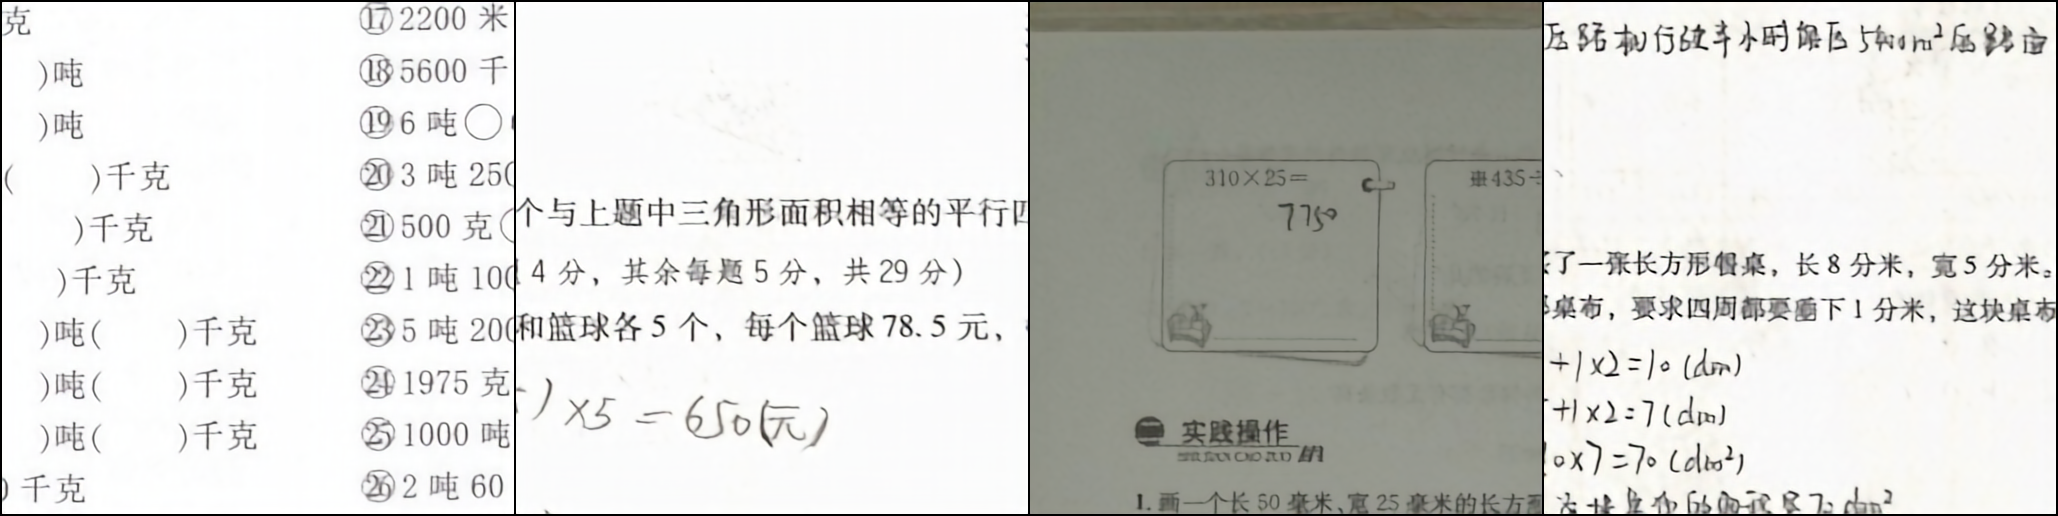 克
)吨
)吨
( )千克
)千克
)千克
)吨( )千克
)吨( )千克
)吨( )千克
)千克
⑰2200 米
⑱5600 千
⑲6 吨○
⑳3 吨 250
㉑500 克
㉒1 吨 100
㉓5 吨 200
㉔1975 克
㉕1000 吨
㉖2 吨 60
个与上题中三角形面积相等的平行四
4 分，其余每题 5 分，共 29 分）
和篮球各 5 个，每个篮球 78.5 元，
)×5=650(元)
310×25=
7750
※435÷
实践操作
1. 画一个长 50 毫米、宽 25 毫米的长方形
压路机行驶半小时能压5400m²的路面
了一张长方形餐桌，长 8 分米，宽 5 分米。
桌布，要求四周都要垂下 1 分米，这块桌布
+1×2=10(dm)
+1×2=7(dm)
10×7=70(dm²)
这块桌布的面积是70dm²